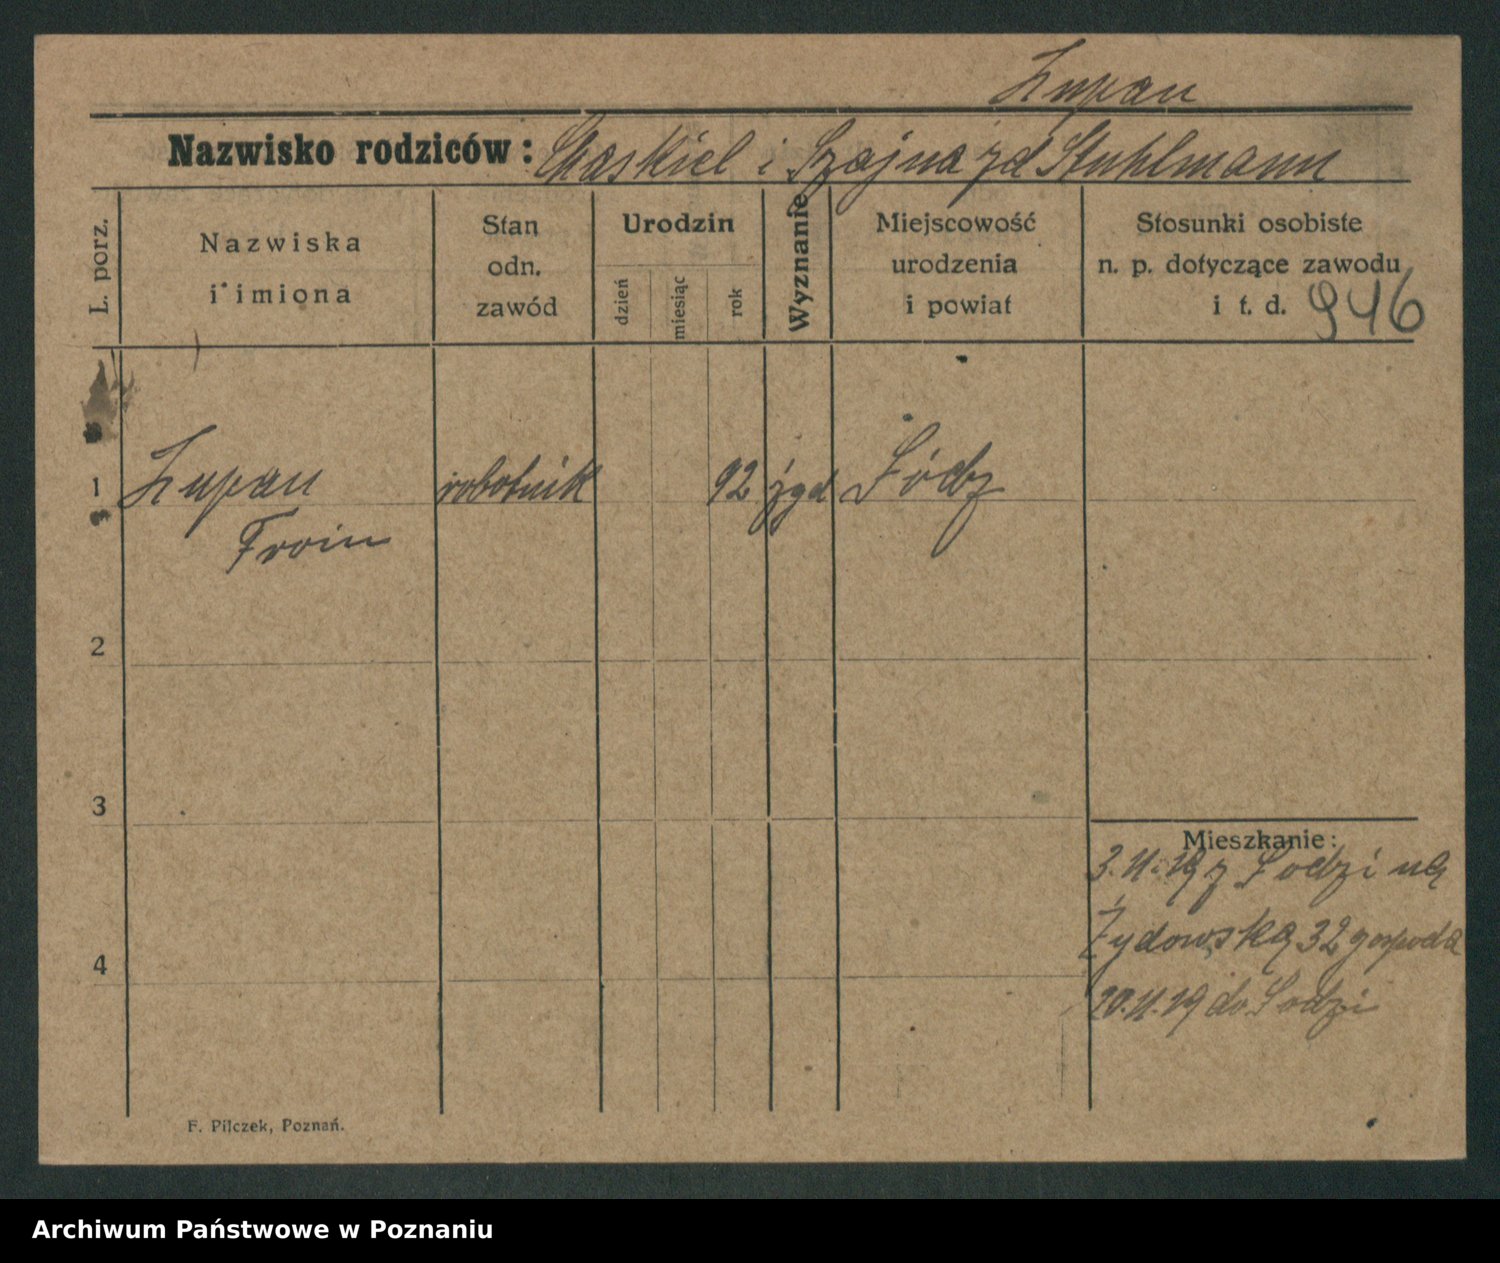 Zupan
Nazwisko rodziców: Chaskiel i Szajna zd Stuhlmann
L. porz.
Nazwiska
i imiona
Stan
odn.
zawód
Urodzin
dzień
miesiąc
rok
Wyznanie
Miejscowość
urodzenia
i powiat
Stosunki osobiste
n. p. dotyczące zawodu
i t. d. 946
1 Zupan robotnik 92 żyd Łódz
Froim
2
3
4
Mieszkanie:
3.11.19 z Łodzi na
Żydowską 32 gospoda
20.11.19 do Łodzi
F. Pilczek, Poznań.
Archiwum Państwowe w Poznaniu